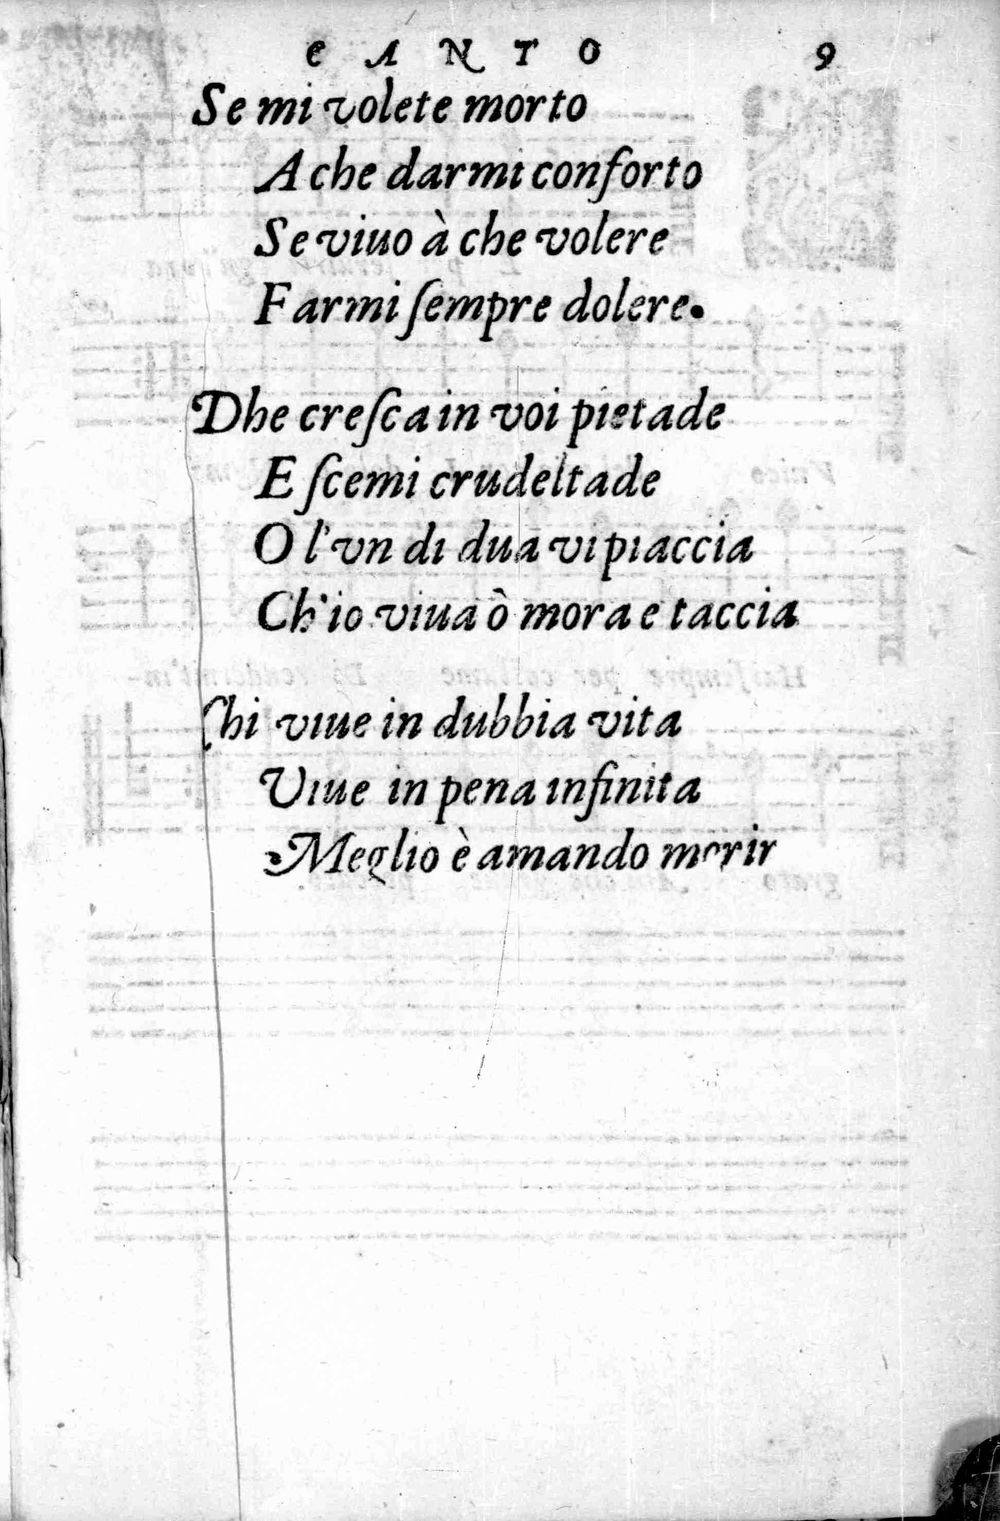 CANTO 9
Se mi volete morto
A che darmi conforto
Se viuo à che volere
Farmi ſempre dolere.
Dhe creſca in voi pietade
E ſcemi crudeltade
O l'vn di dua vi piaccia
Ch'io viua ò mora e taccia
Chi viue in dubbia vita
Viue in pena infinita
Meglio è amando morir